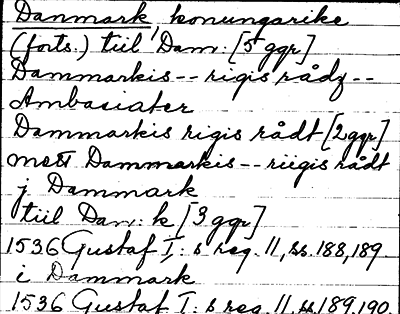 Danmark, konungarike
(forts.) tiil Dam: [5 ggr]
Dammarkis -- rigis rådz --
Ambasiater
Dammarkis rigis rådt [2 ggr]
mett Dammarkis -- riigis rådt
j Dammark
tiil Dan: k [3 ggr]
1536 Gustaf I: s reg. 11, ss. 188, 189.
i Dammark
1536 Gustaf I: s reg. 11, ss. 189, 190.